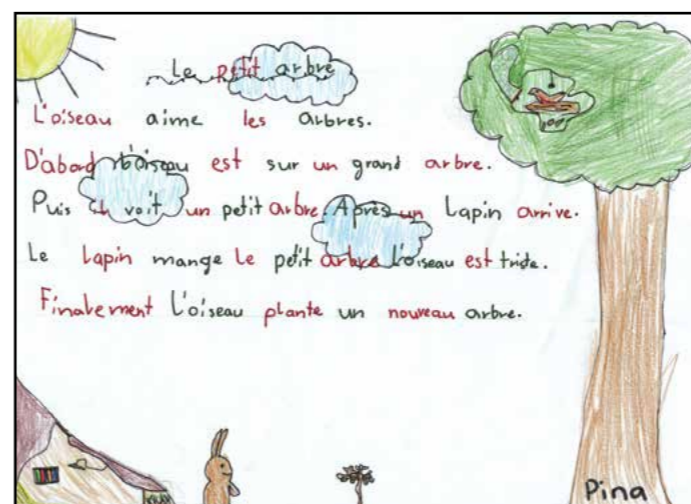 Le Petit arbre
L'oiseau aime les arbres.
D'abord l'oiseau est sur un grand arbre.
Puis il voit un petit arbre. Après un Lapin arrive.
Le lapin mange le petit arbre l'oiseau est triste.
Finalement l'oiseau plante un nouveau arbre.
Pina